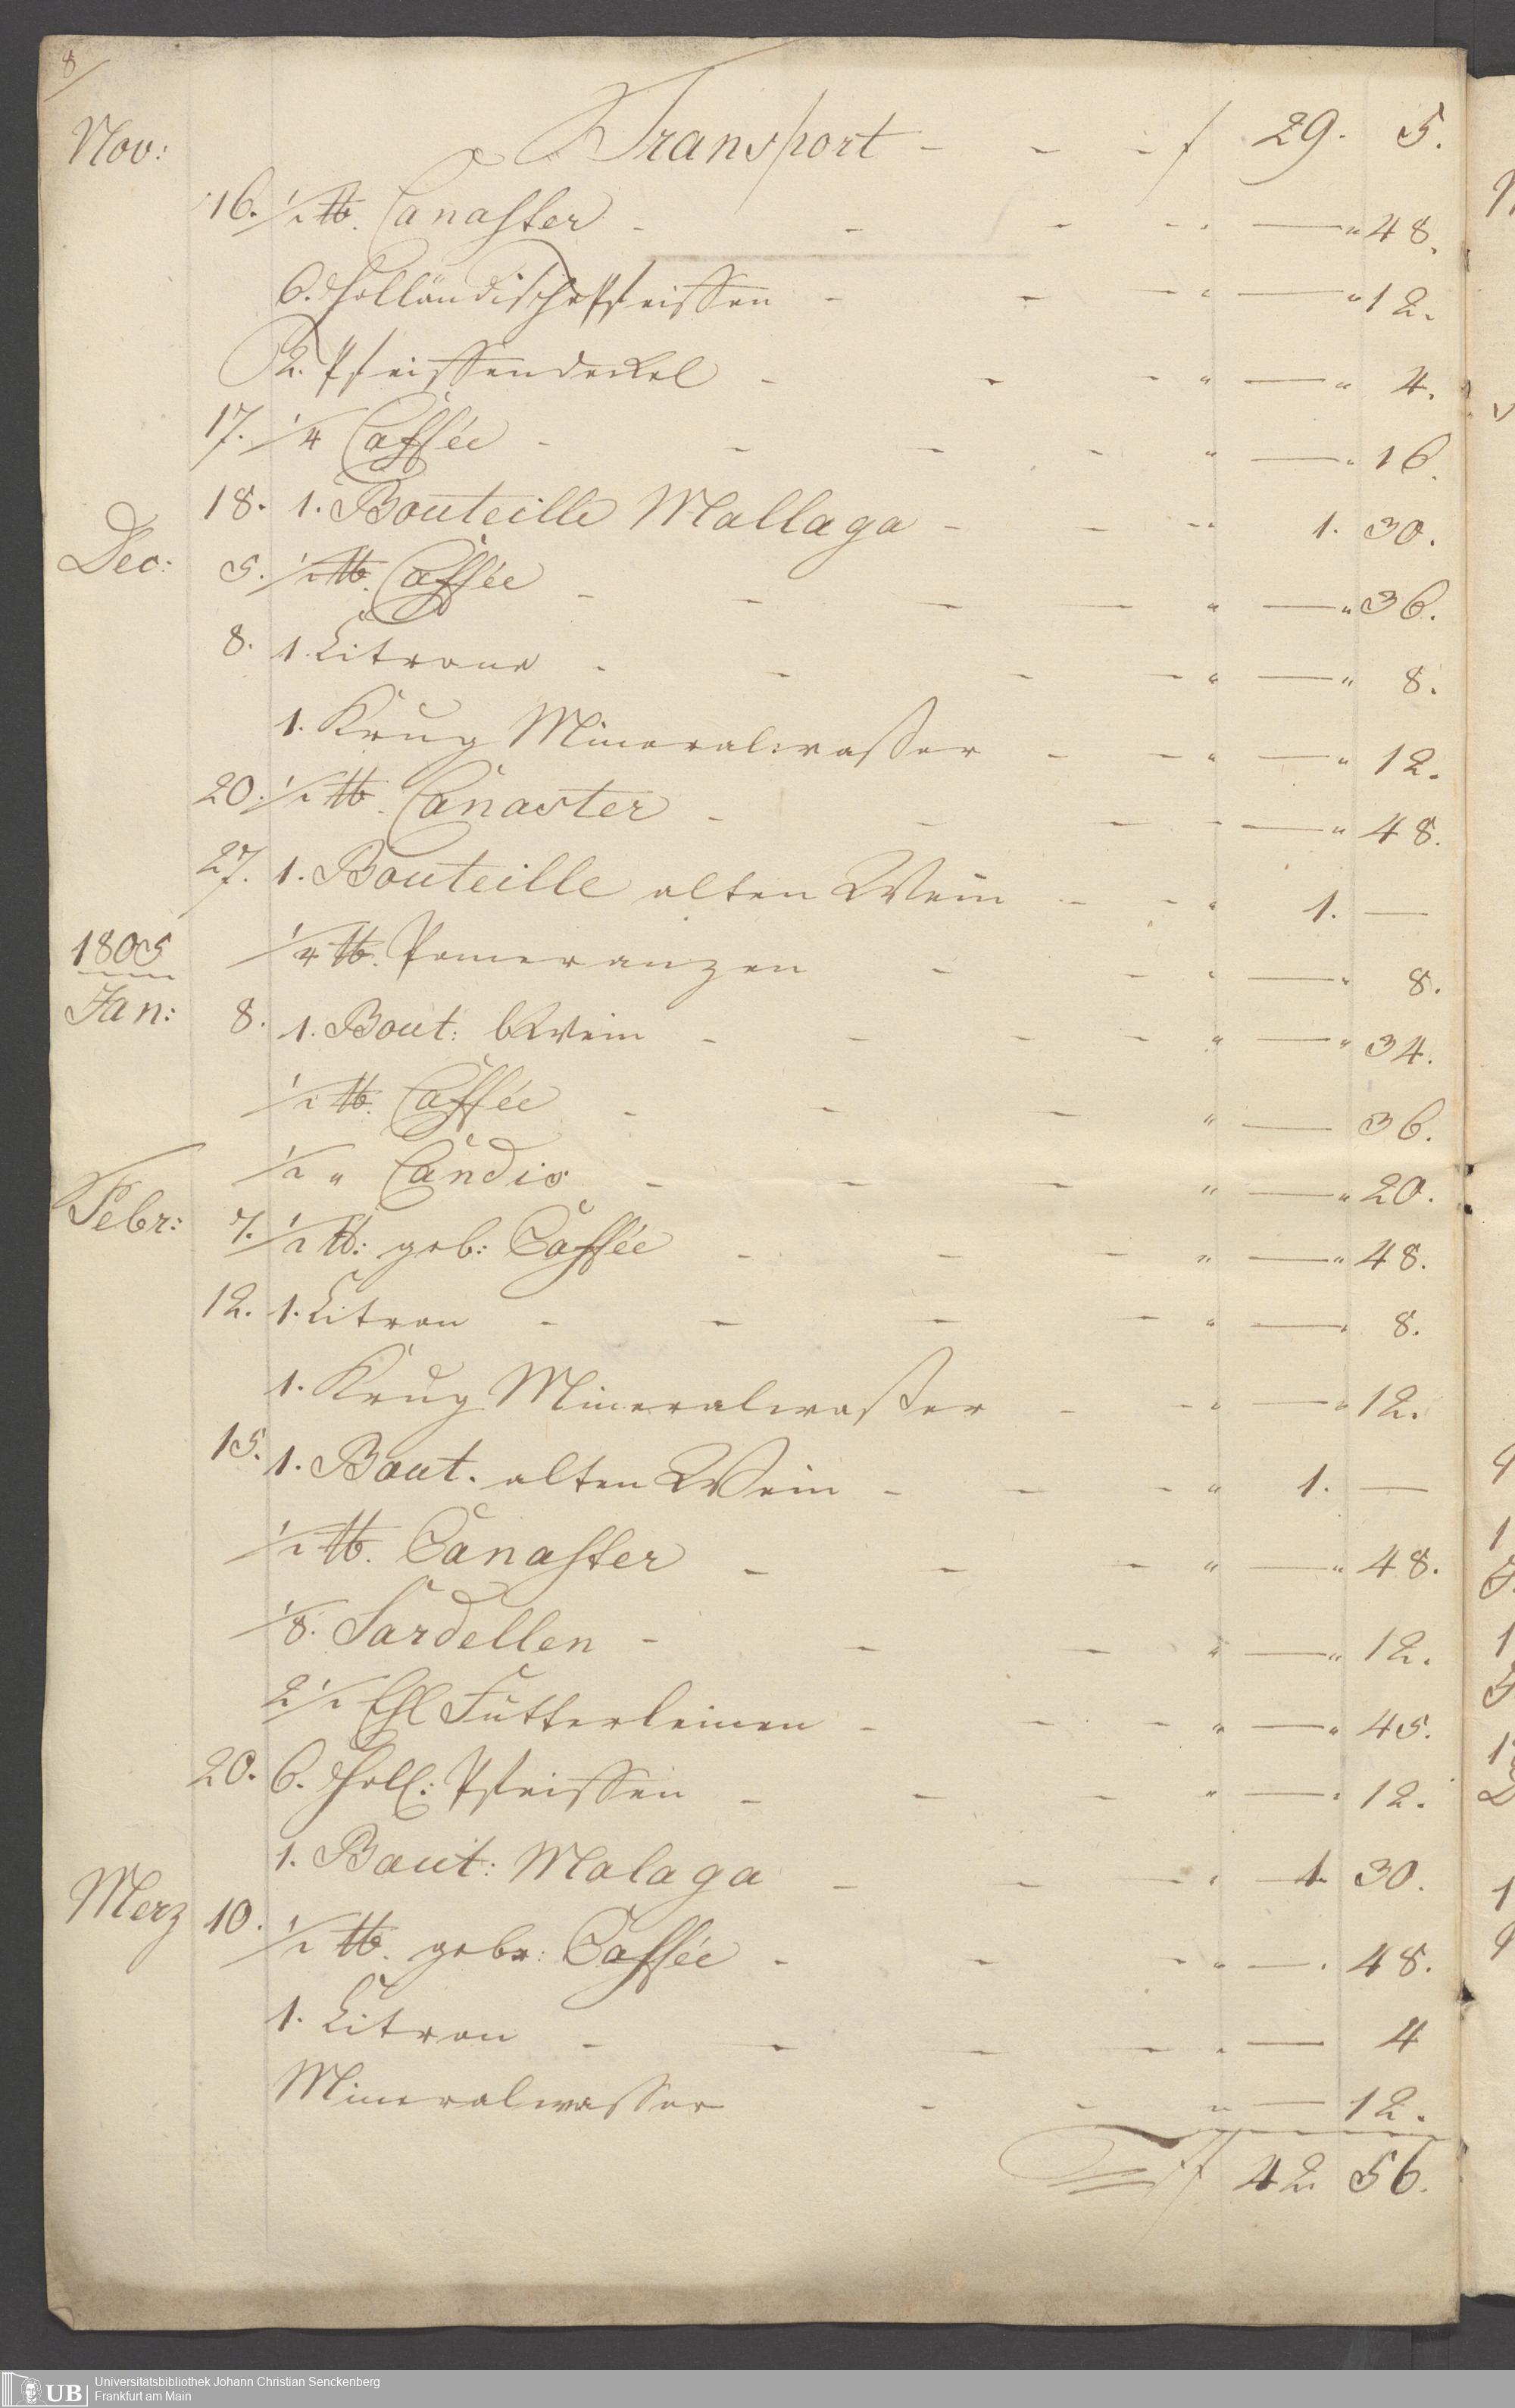 8
Nov: Transport - - - f 29. 5.
16. 1/2 ℔. Canaster - - - - " — " 48.
6. Holländische Pfeiffen - - - " — " 12.
2. Pfeiffendeckel - - - " — " 4.
17. 1/4 Caffée - - - - " — " 16.
18. 1. Bouteille Mallaga - - - " 1. 30.
Dec: 5. 1/2 ℔. Caffée - - - - " — " 36.
8. 1. Citrone - - - - " — " 8.
1. Krug Mineralwasser - - " — " 12.
20. 1/2 ℔. Canaster - - - - — " 48.
27. 1. Bouteille alten Wein - - " 1. —
1/4 ℔. Pomeranzen - - " — " 8.
1805
Jan: 8. 1. Bout: bWein - - - - " — " 34.
1/2 ℔. Caffée - - - " — 36.
1/2 " Candis - - - " — " 20.
Febr: 7. 1/2 ℔: geb: Caffée - - - " — " 48.
12. 1. Citron - - - - " — " 8.
1. Krug Mineralwasser - - " — " 12.
15. 1. Bout. alten Wein - - - " 1. —
1/2 ℔. Canaster - - - " — " 48.
1/8. Sardellen - - - " — " 12.
2 1/2 Ehl Futterleinen - - - " — " 45.
20. 6. Holl: Pfeiffen - - - " — " 12.
1. Bout: Malaga - - - " — 1. 30.
Merz 10. 1/2 ℔. gebr: Caffée - - - " — " 48.
1. Citron - - - - " — 4
Mineralwasser - - " — 12.
f 42. 56.
UB Universitätsbibliothek Johann Christian Senckenberg
Frankfurt am Main